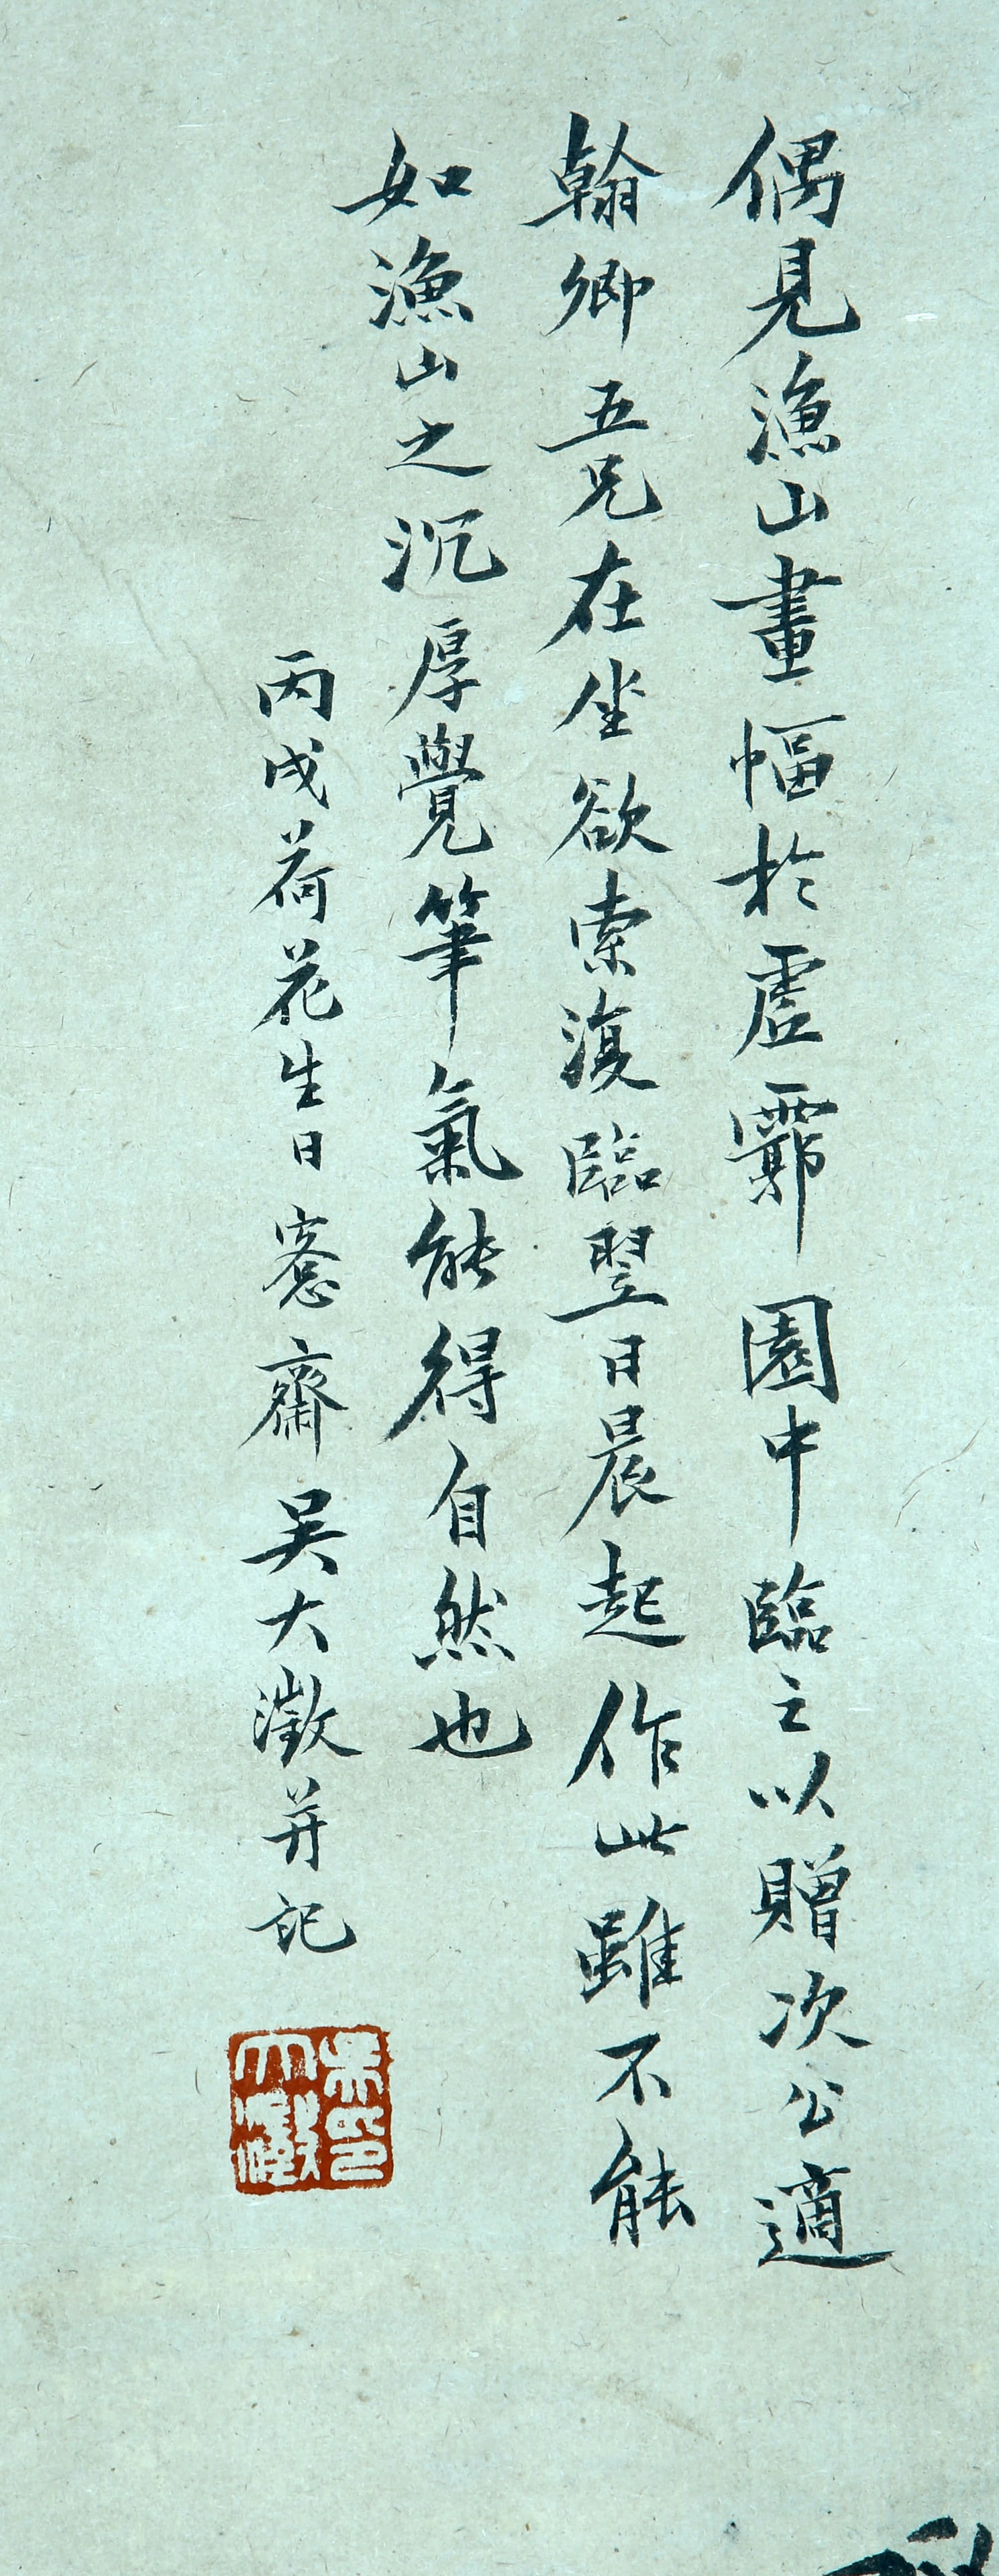 偶見漁山畫幅於虛霩園中臨之以贈次公適
翰卿五兄在坐欲索復臨翌日晨起作此雖不能
如漁山之沉厚覺筆氣能得自然也
丙戌荷花生日愙齋吳大澂并記
吳印大澂